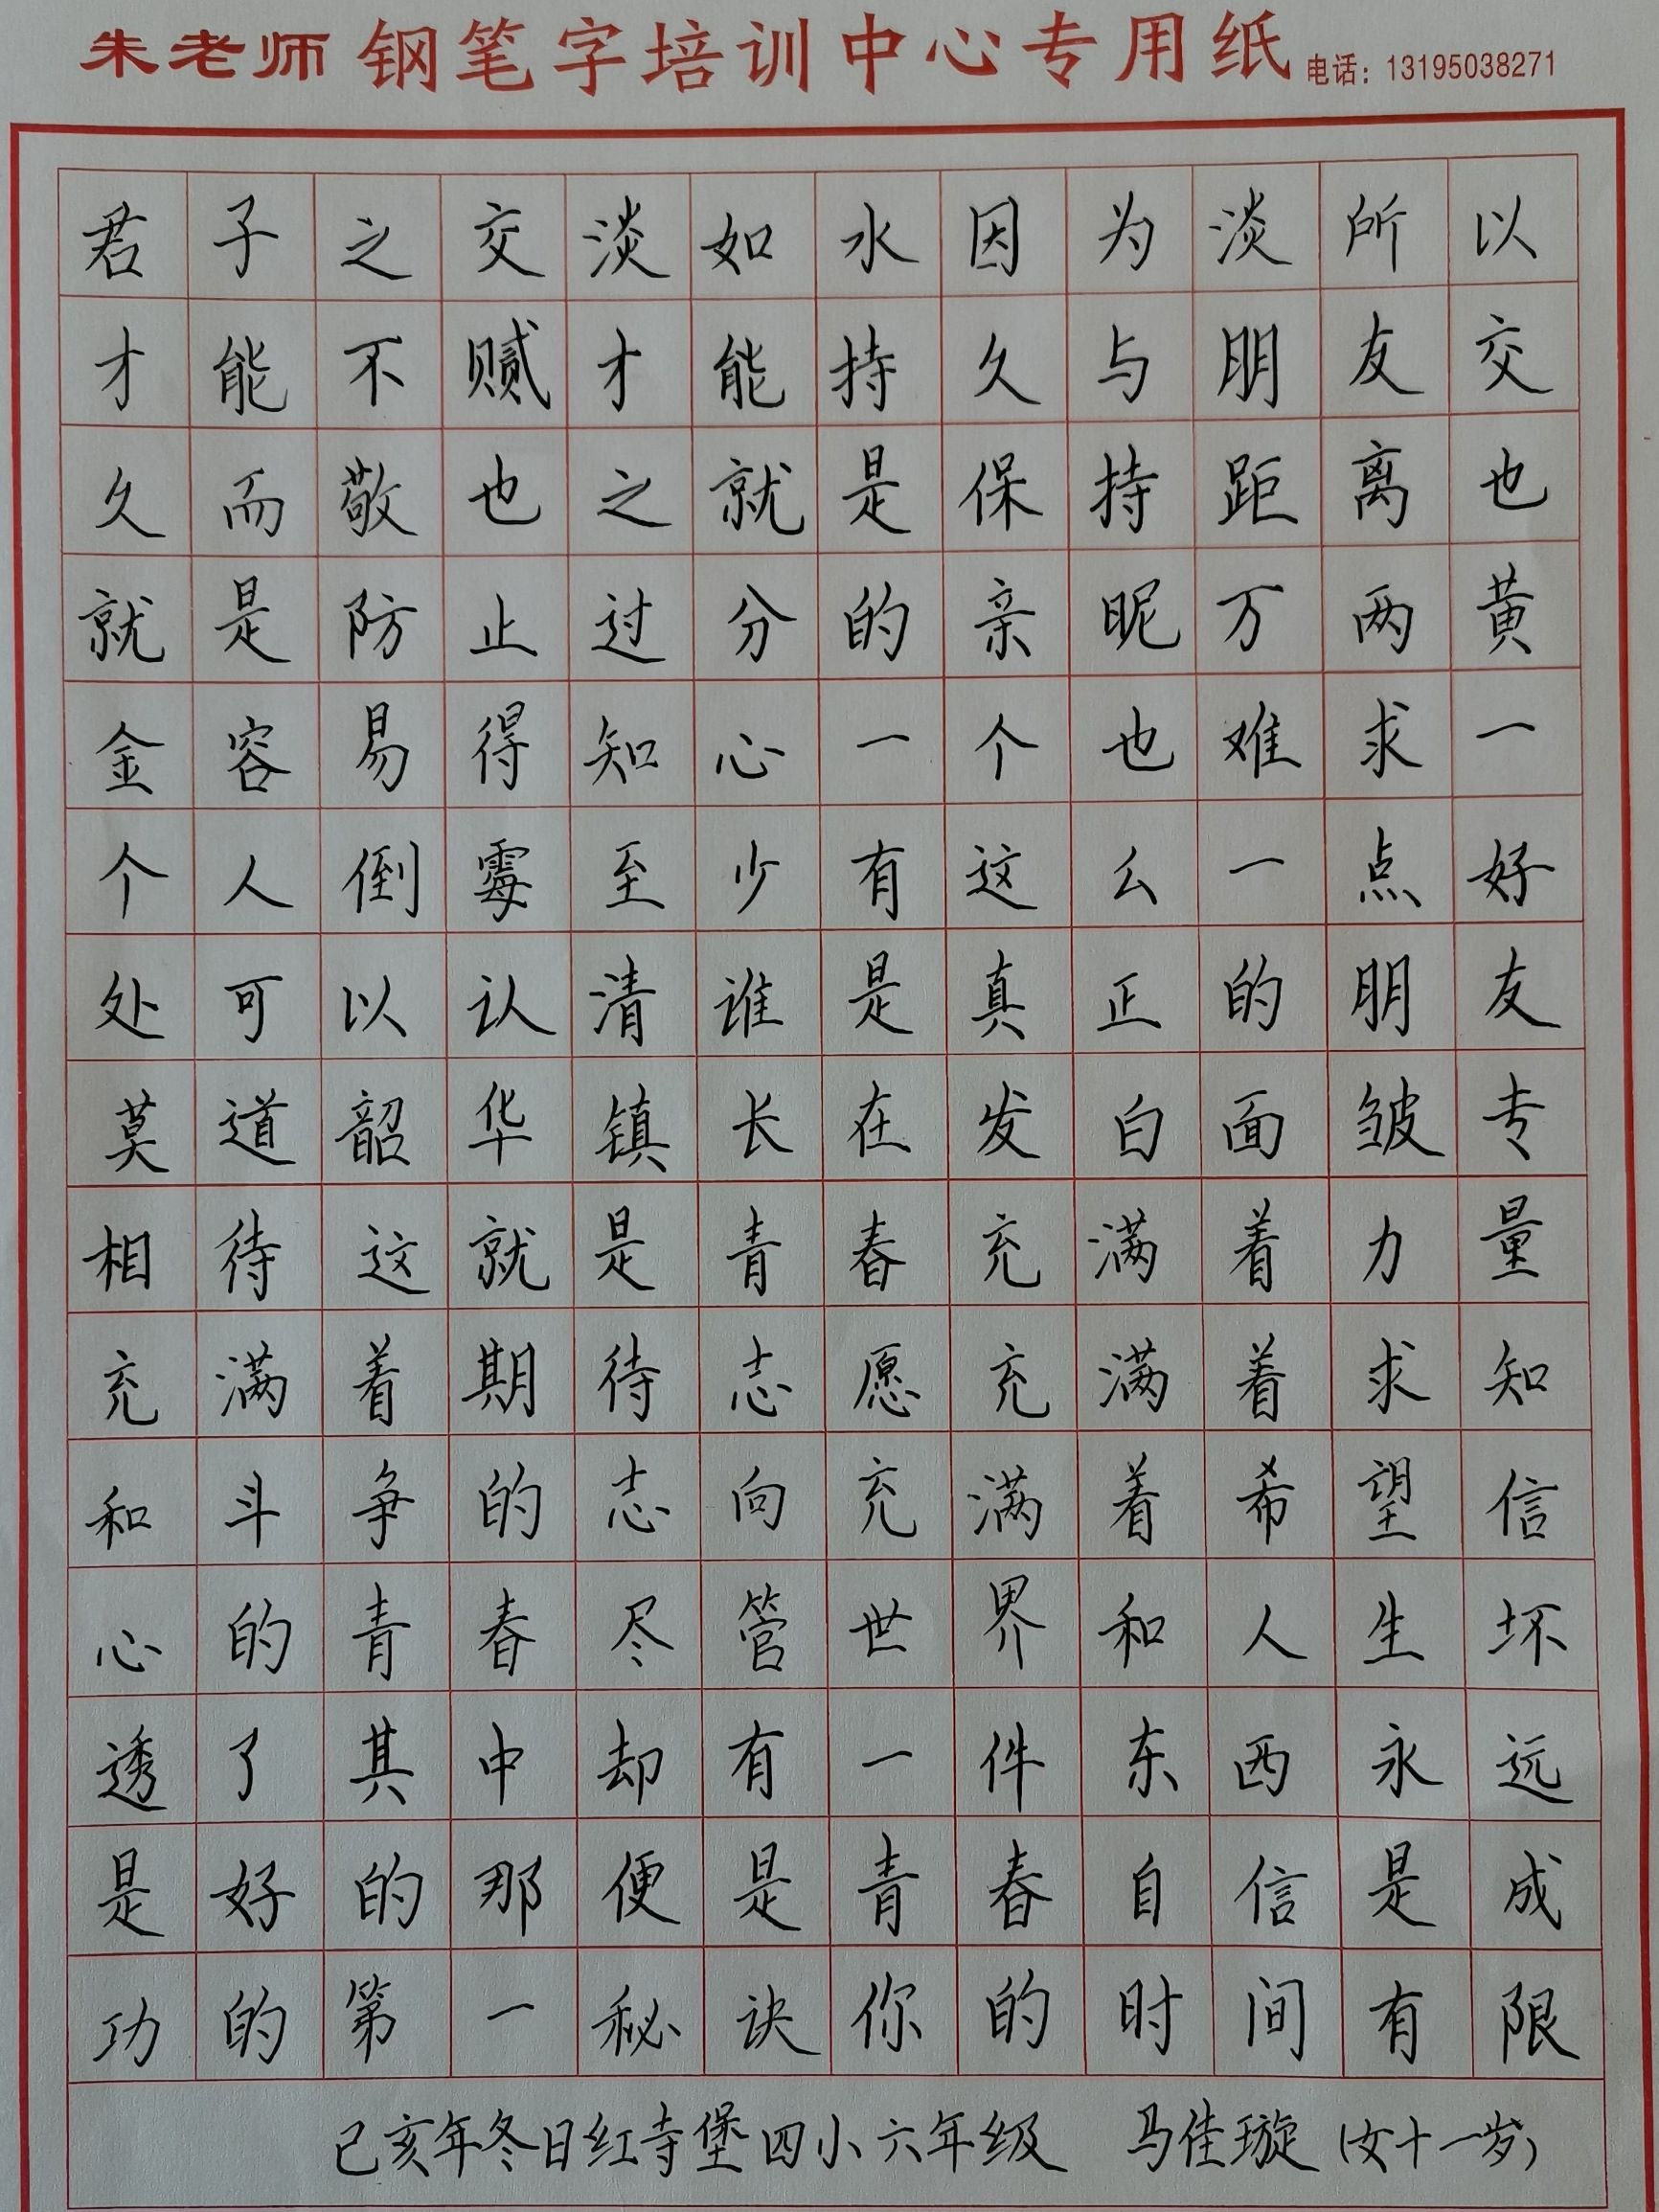 朱老师钢笔字培训中心专用纸 电话：13195038271
君子之交淡如水因为淡所以
才能不腻才能持久与朋友交
久而敬也之就是保持距离也
就是防止过分的亲昵万两黄
金容易得知心一个也难求一
个人倒霉至少有这么一点好
处可以认清谁是真正的朋友
莫道韶华镇长在发白面皱专
相待这就是青春充满着力量
充满着期待志愿充满着求知
和斗争的志向充满着希望信
心的青春尽管世界和人生坏
透了其中却有一件东西永远
是好的那便是青春自信是成
功的第一秘诀你的时间有限
己亥年冬日红寺堡四小六年级 马佳璇（女十一岁）